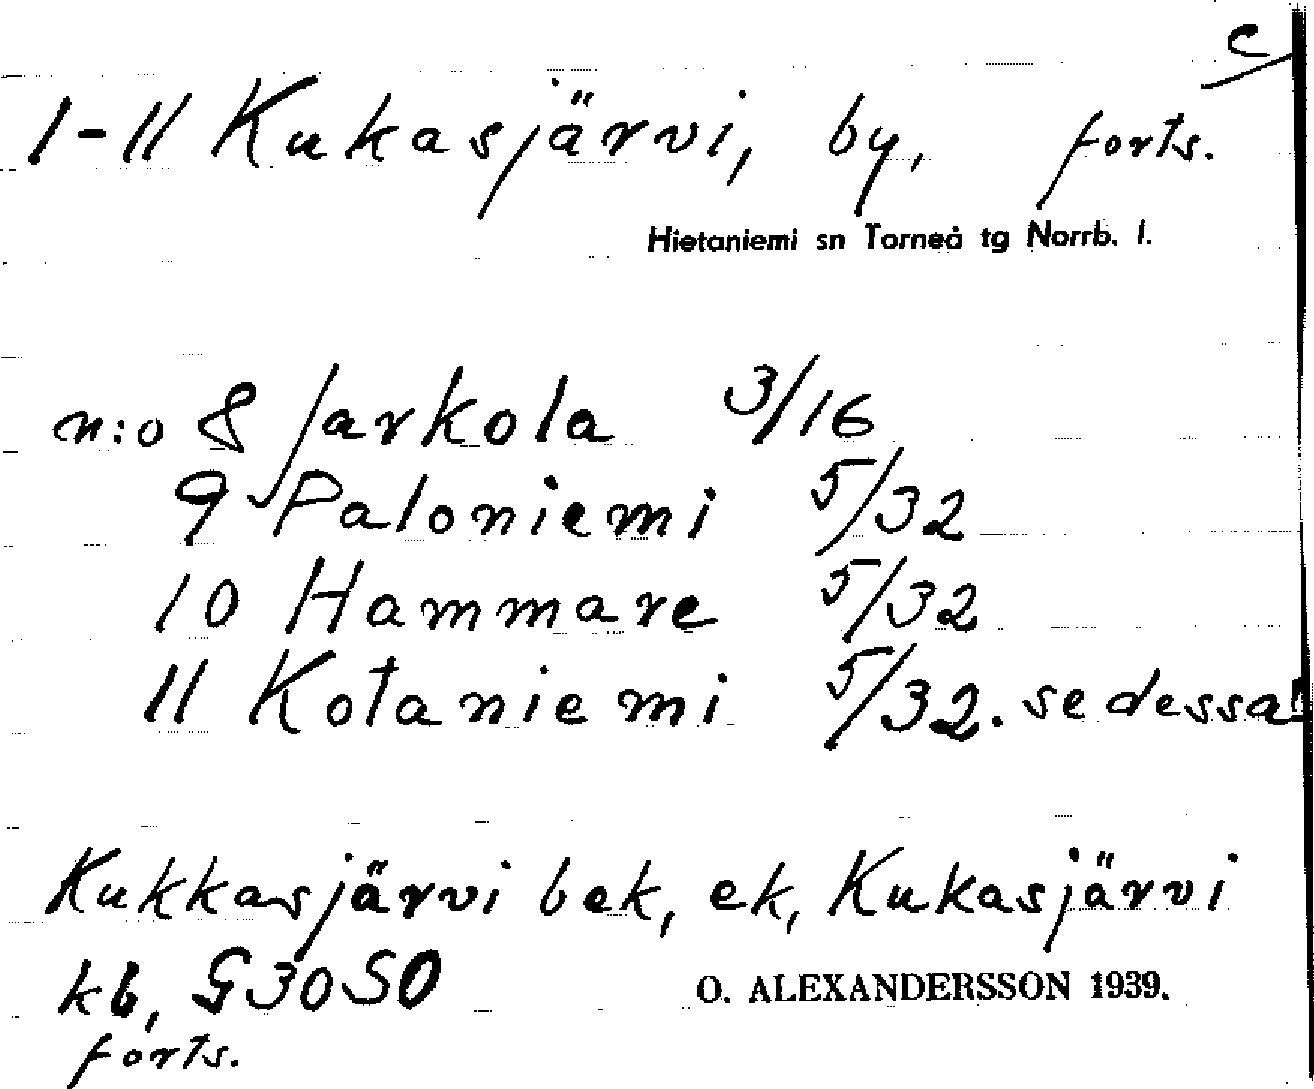 c
1-11 Kukasjärvi, by, forts.
Hietaniemi sn Torneå tg Norrb. l.
n:o 8 Jarkola 3/16
9 Paloniemi 5/32
10 Hammare 5/32
11 Kotaniemi 5/32. se dessa!
Kukkasjärvi bek, ek, Kukasjärvi
kb, G30SO
O. ALEXANDERSSON 1939.
forts.